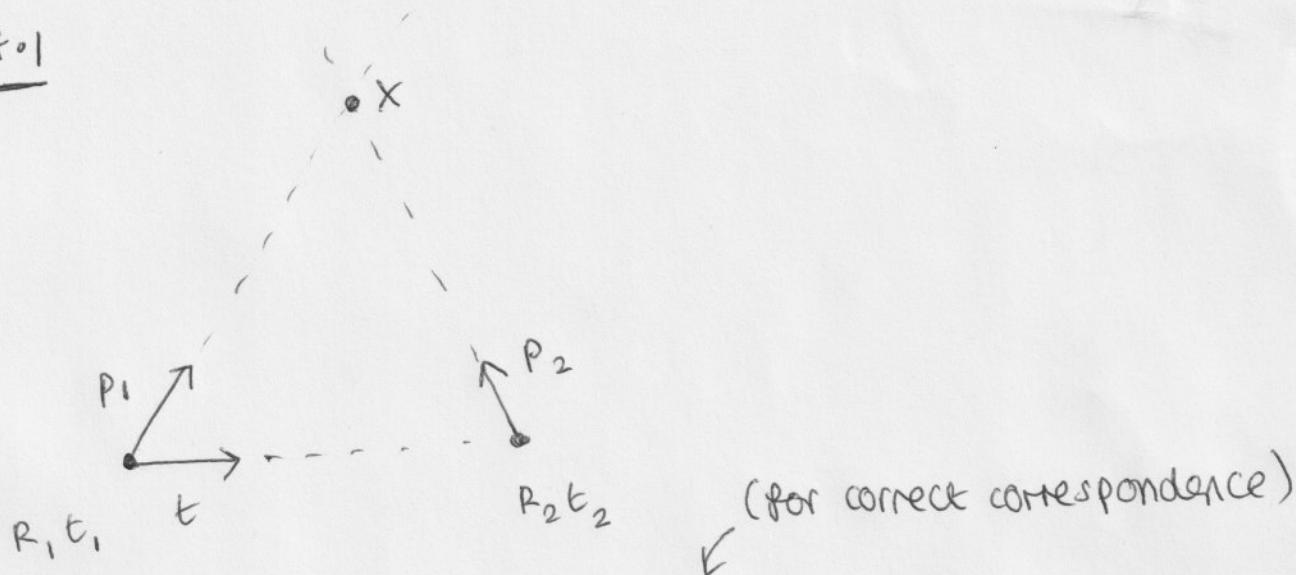 X
P1
P2
t
R1 t1
R2 t2
(for correct correspondence)